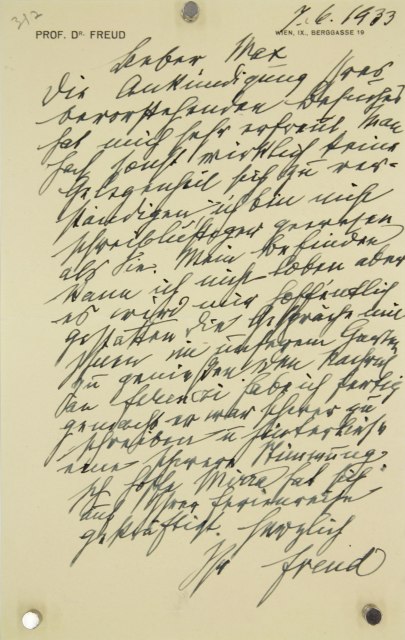 312
7.6.1933
PROF. DR. FREUD
WIEN, IX., BERGGASSE 19
Lieber Max
Die Ankündigung Ihres
bevorstehenden Besuches
hat mich sehr erfreut. Man
hat sonst wirklich keine
Gelegenheit sich zu ver-
ständigen ich bin nicht
schreiblustiger gewesen
als Sie. Mein Befinden
kann ich nicht loben aber
es wird mir hoffentlich
gestatten die Gespräche mit
Ihnen in unserem Garten
zu geniessen. Den Nachruf
an Ferenczi habe ich fertig
gemacht er war schwer zu
schreiben u hinterliess
eine schwere Stimmung.
Ich hoffe Mirra hat sich
auf Ihrer Ferienreise
gekräftigt. Herzlich
Ihr Freud